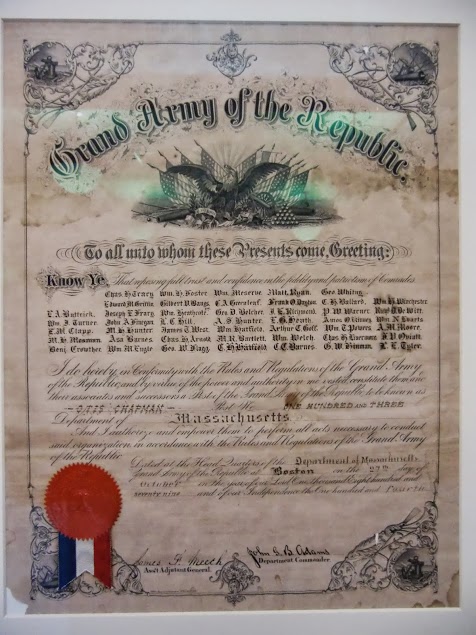 Grand Army of the Republic.
To all unto whom these Presents come, Greeting:
Know Ye, That reposing full trust and confidence in the fidelity and patriotism of Comrades
Chas H. Tracy Wm. H. Foster Wm. Merove Matt. Ryan. Geo Whiting.
Edward M. Griffin Gilbert P. Bangs C A Greenleaf Frank O. Dayton C H Ballard. Wm H. Winchester
L A Buttrick. Joseph E. Frary Wm. Heathcote. Geo D. Belcher. J E Richmond. P W Warner Row D De Witt.
Wm. J. Turner. John A. Finigan R C Hill A S Hunter. E G Heath. Amos O Kinney Wm N Swarts
E M Clapp. M H Hunter James T. West. Wm Hatfield. Arthur C Goff. Wm T. Powers. A M Moore.
M H Bowman. Asa Barnes Chas H. Arnold M R Bartlett. Wm Welch. Chas H. Emerson H P Ovistt
Benj. Crowther Wm M. Engle Geo. W. Flagg C H Hatfield C T Barnes. G W Zinman. L E Tyler.
I do hereby, in Conformity with the Rules and Regulations of the Grand Army
of the Republic and by virtue of the power and authority in me vested, constitute them and
their associates and successors a Post of the Grand Army of the Republic, to be known as
OTIS CHAPMAN Post No. ONE HUNDRED and THREE
Department of Massachusetts.
And I authorize and empower them to perform all acts necessary to conduct
said organization in accordance with the Rules and Regulations of the Grand Army
of the Republic.
Dated at the Head Quarters of the Department of Massachusetts
Grand Army of the Republic, Boston on the 27th day of
October in the year of our Lord One thousand Eight hundred and
seventy nine and of our Independence the One hundred and Fourth.
James F. Meech John G. B. Adams
Ass't Adjutant General. Department Commander.